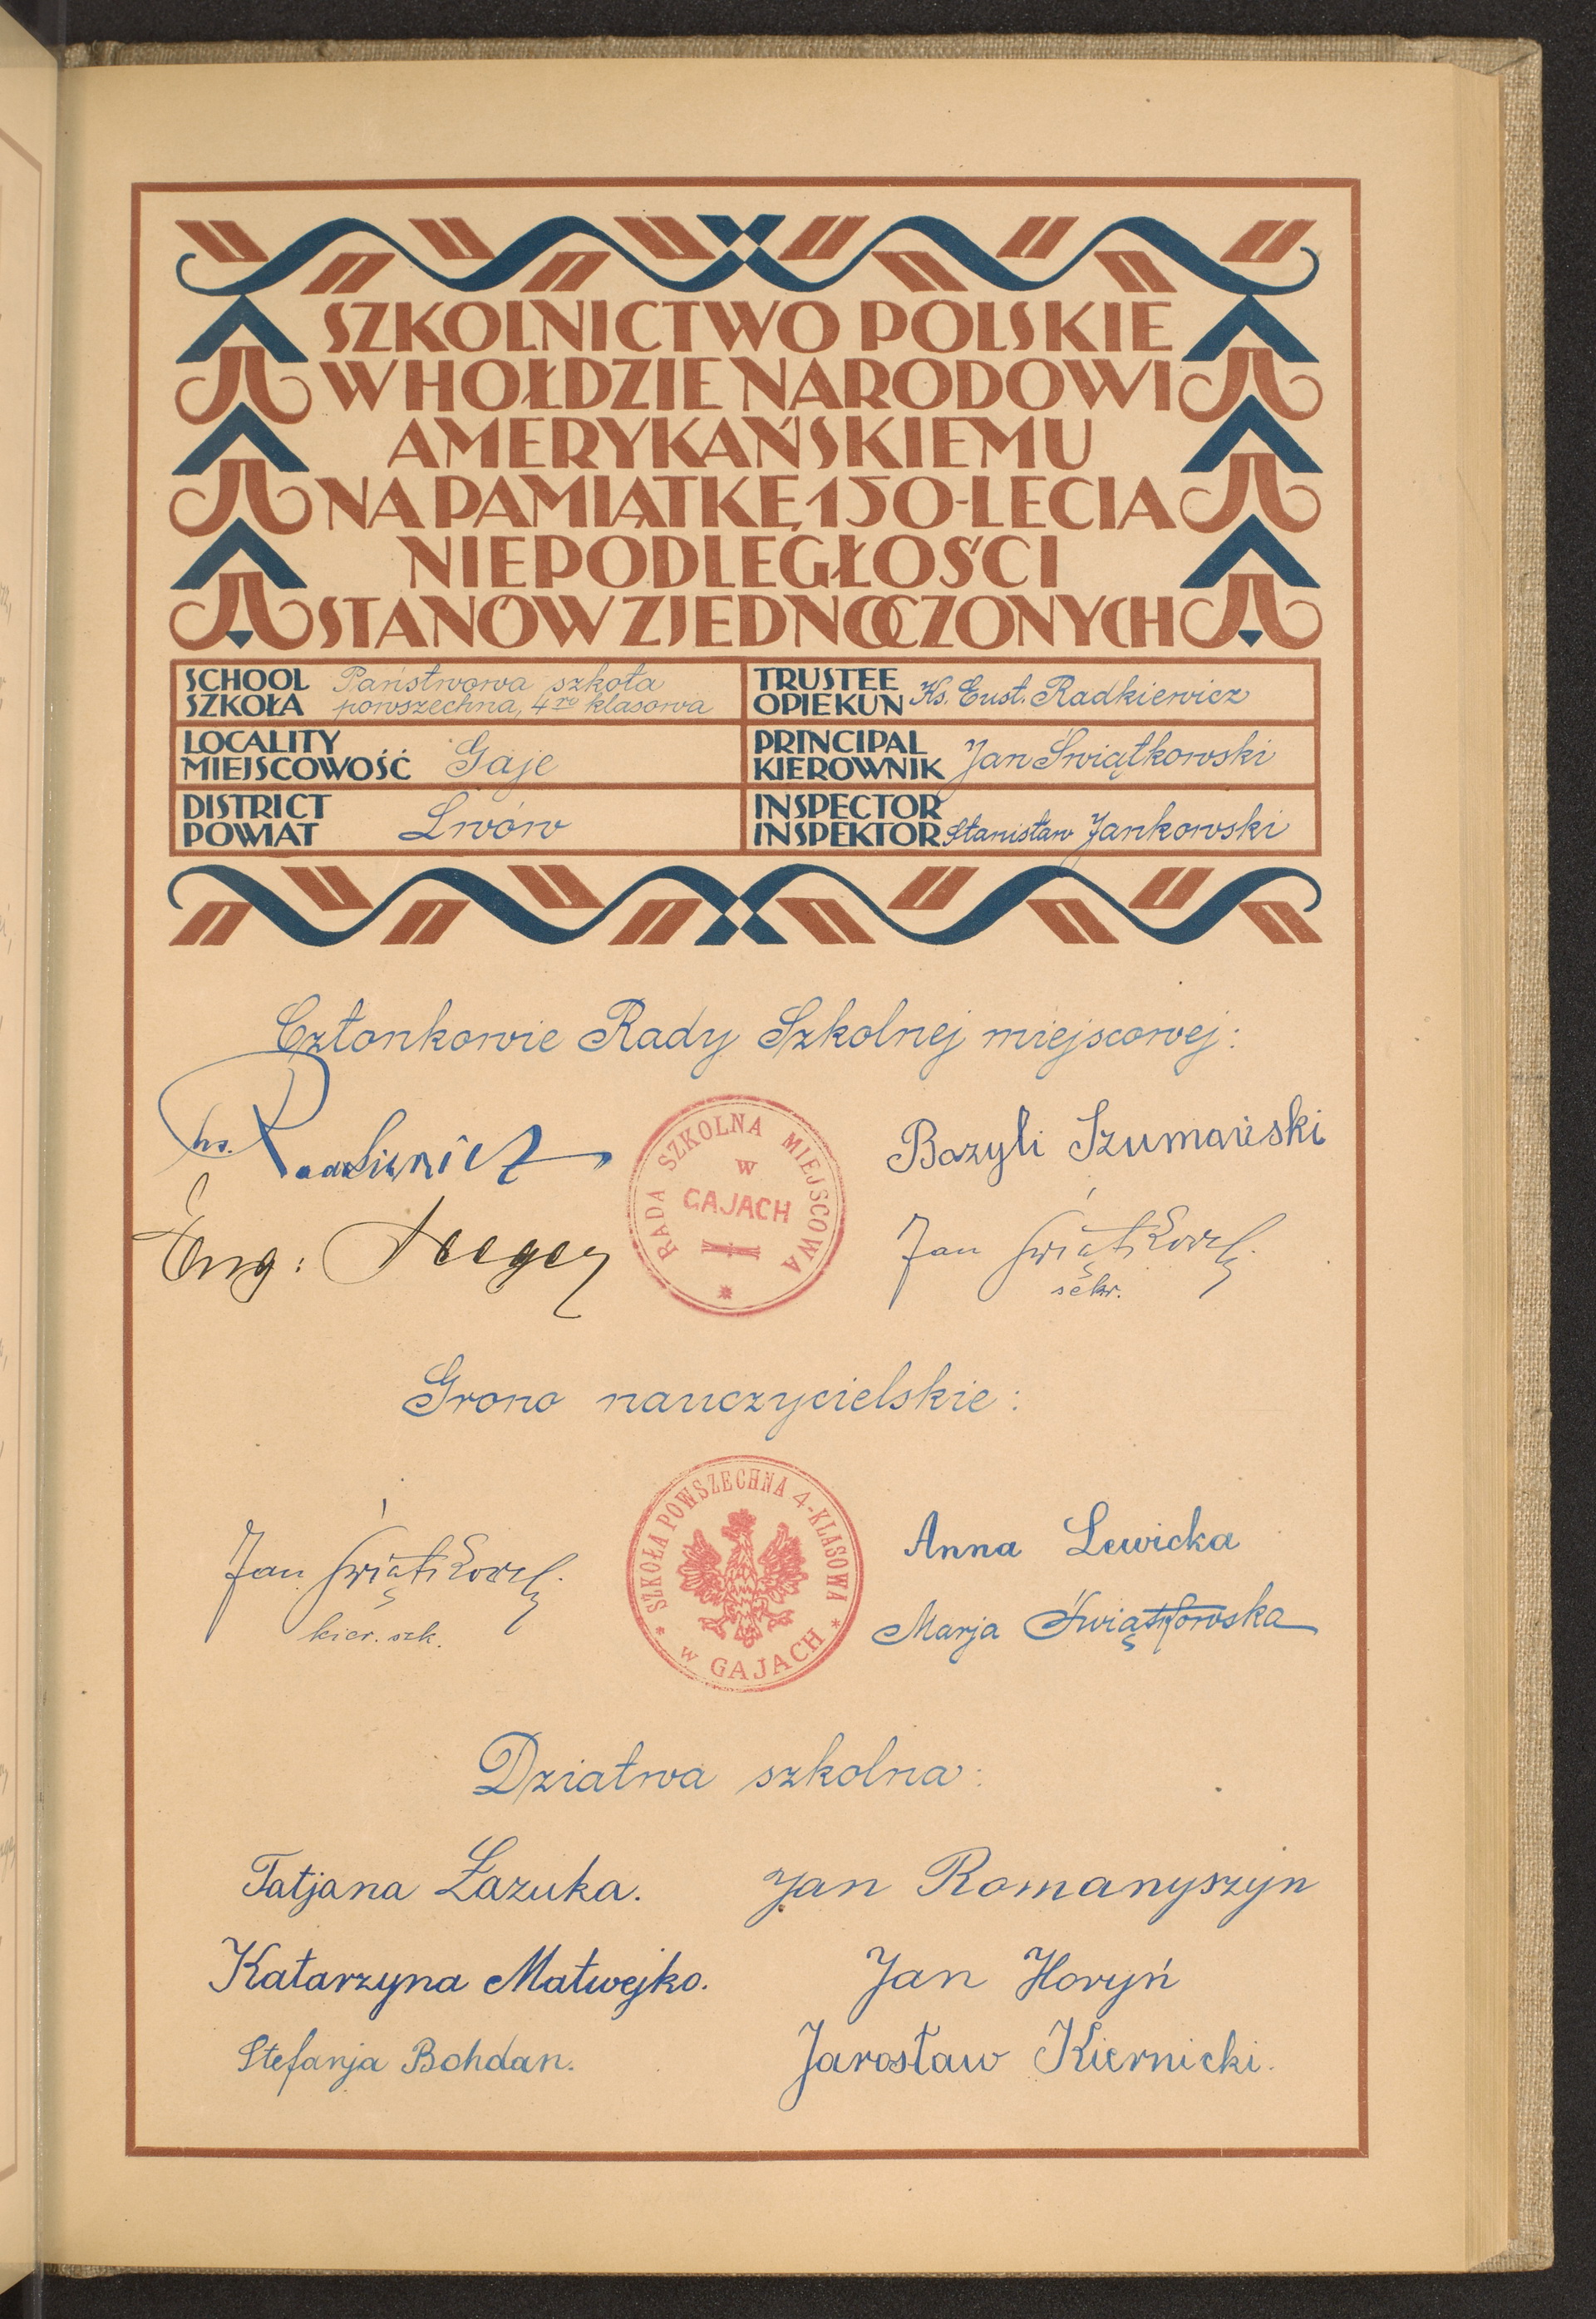 SZKOLNICTWO POLSKIE
W HOŁDZIE NARODOWI
AMERYKAŃSKIEMU
NA PAMIĄTKĘ 150-LECIA
NIEPODLEGŁOŚCI
STANÓW ZJEDNOCZONYCH
SCHOOL
SZKOŁA
Państwowa szkoła
powszechna, 4ro klasowa
TRUSTEE
OPIEKUN
Ks. Eust. Radkiewicz
LOCALITY
MIEJSCOWOŚĆ
Gaje
PRINCIPAL
KIEROWNIK
Jan Świątkowski
DISTRICT
POWIAT
Lwów
INSPECTOR
INSPEKTOR
Stanisław Jankowski
Członkowie Rady Szkolnej miejscowej:
Ks. Radkiewicz
RADA SZKOLNA MIEJSCOWA
W
GAJACH
Bazyli Szumański
Eng:
Jan Świątkowski
sekr.
Grono nauczycielskie:
Jan Świątkowski
kier. szk.
* SZKOŁA POWSZECHNA 4-KLASOWA *
w GAJACH
Anna Lewicka
Marja Świątkowska
Dziatwa szkolna:
Tatjana Łazuka.
Jan Romanyszyn
Katarzyna Matwejko.
Jan Horyń
Stefanja Bohdan.
Jarosław Kiernicki.